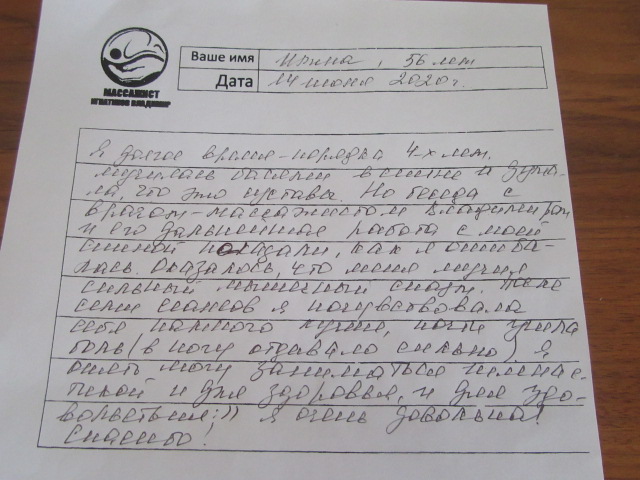 МАССАЖИСТ
ИГНАТЕНКОВ ВЛАДИМИР
Ваше имя Ирина, 56 лет
Дата 14 июня 2020г.
Я долгое время - порядка 4-х лет,
мучилась болями в спине и дума-
ла, что это суставы. Но беседа с
врачом-массажистом Владимиром
и его дальнейшая работа с моей
спиной показали, как я ошиба-
лась. Оказалось, что меня мучил
сильный мышечный спазм. После
семи сеансов я почувствовала
себя намного лучше, почти ушла
боль (в ногу отдавало сильно) Я
опять могу заниматься гимнас-
тикой и для здоровья, и для удо-
вольствия;)) Я очень довольна!
Спасибо!